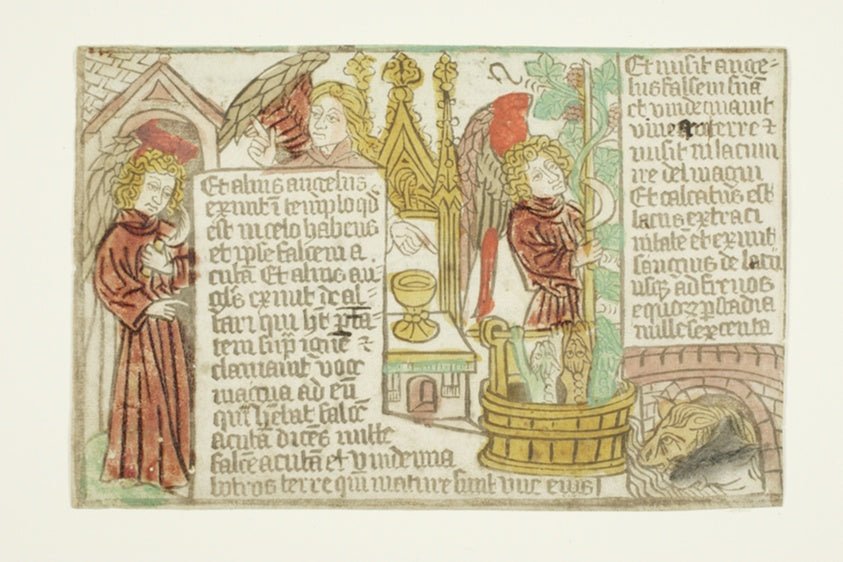 Et alius angelus
exivit d templo qd
est in celo habens
et ipse falcem a
cutā Et alius an
gls exivit de al-
tari qui ht ptā
tem sup ignē et
clamavit voce
magna ad eū
qui hēbat falcē
acutā dicēs mitte
falcē acutā et vindemia
botros terre qm mature sunt uve eius
Et misit ange-
lus falcem suā
et vindemiavit
vineā terre et
misit in lacum
ire dei magni
Et calcatus est
lacus extra ci
vitatē et exivit
sanguis de lacu
usq; ad frenos
equorz p stadia
mille sexcenta